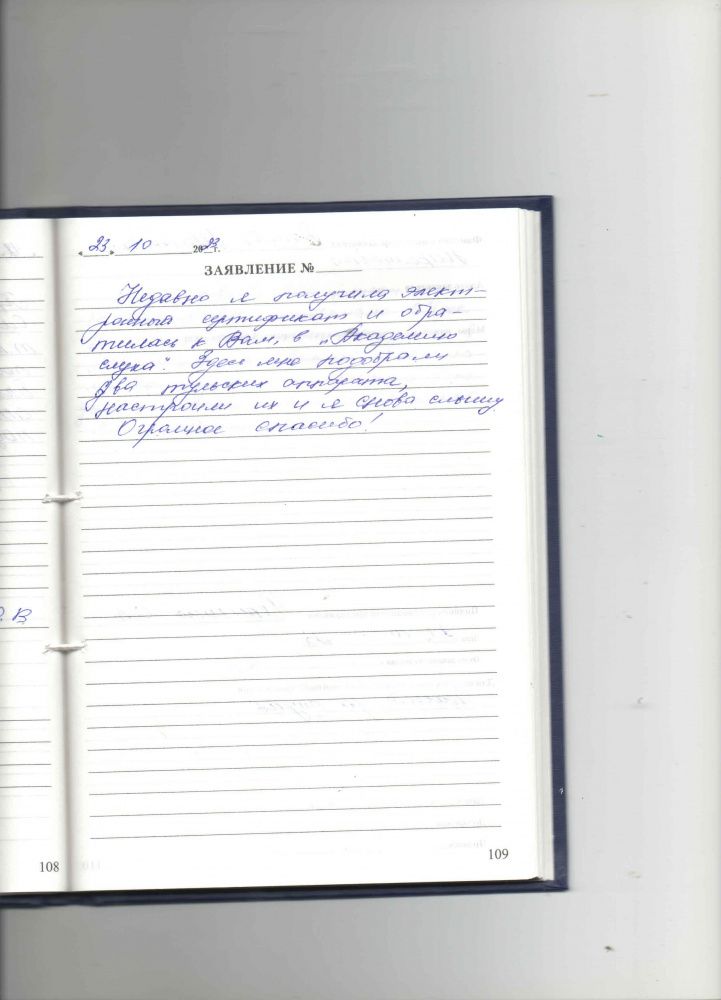 « 23 » 10 2023 г.
ЗАЯВЛЕНИЕ №
Недавно я получила элект-
ронный сертификат и обра-
тилась к Вам, в „Академию
слуха". Здесь мне подобрали
два тульских аппарата,
настроили их и я снова слышу
Огромное спасибо!
В
108
109